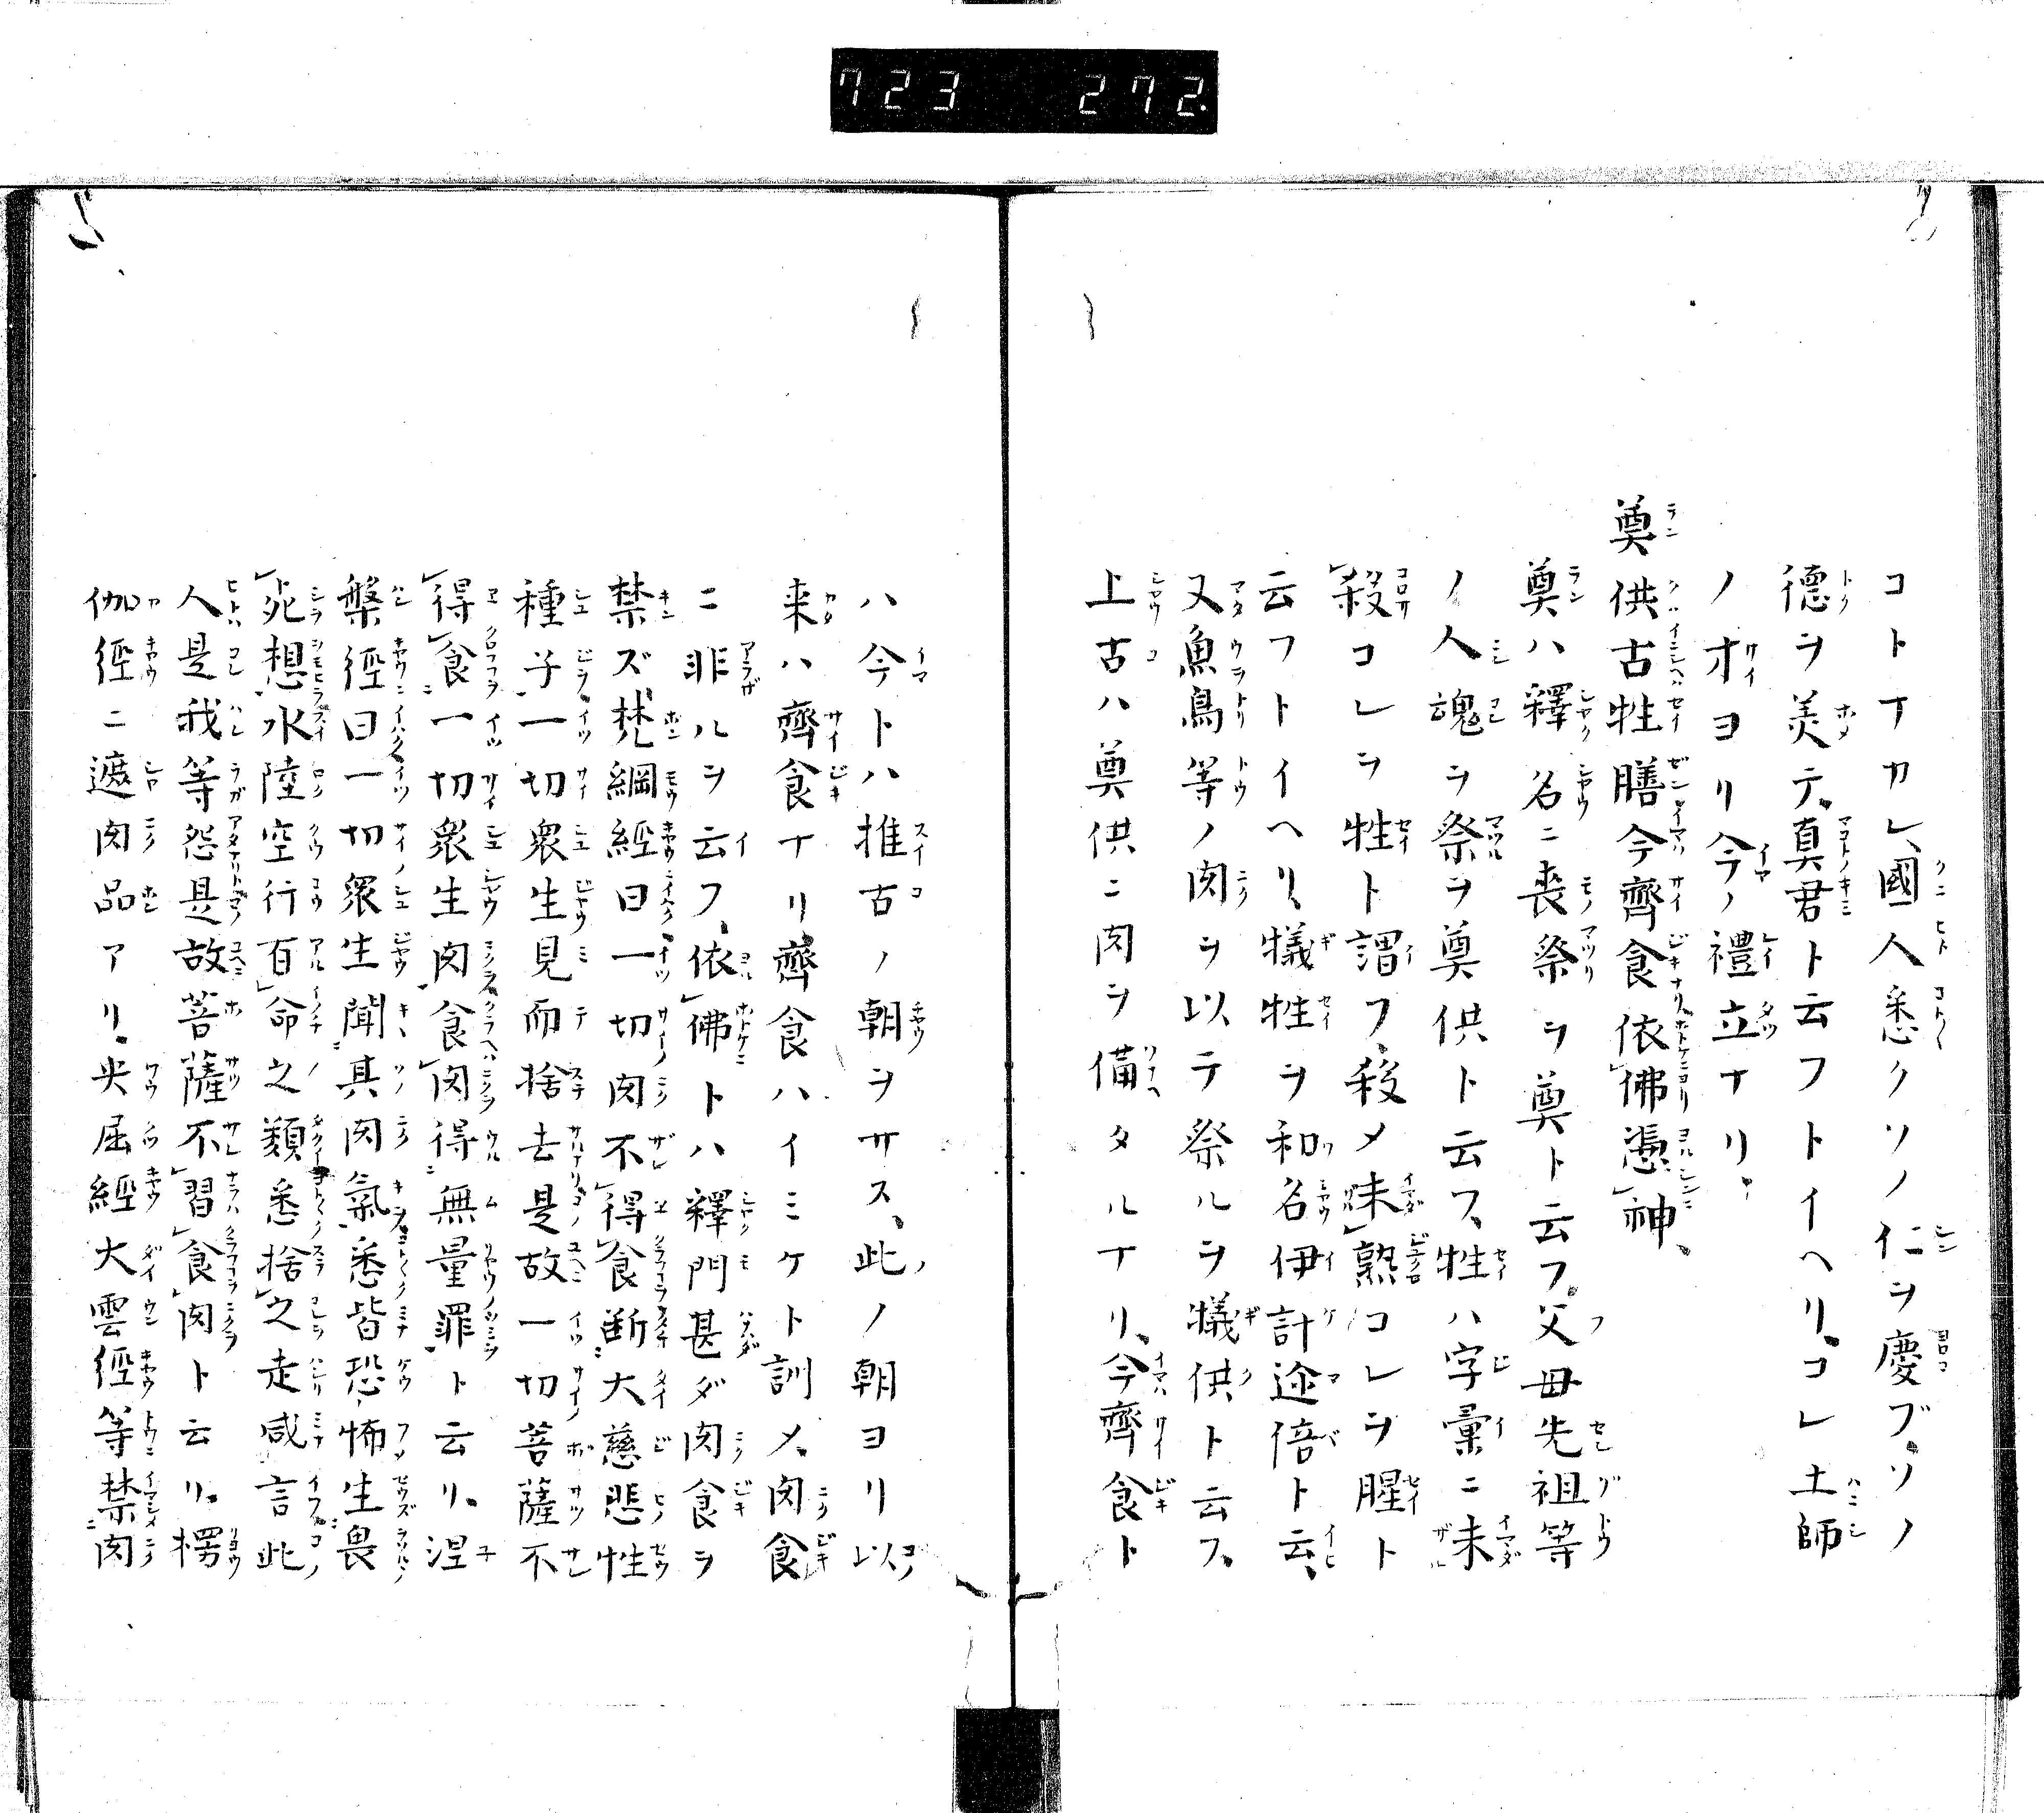 723 272.
コトナカレ國人悉クソノ仁ヲ慶ブ、ソノ
德ヲ美テ、真君ト云フトイヘリ、コレ土師
ノ才ヨリ今ノ禮立ナリ、
奠供古牲膳今齊食依佛憑神、
奠ハ釋名ニ喪祭ヲ奠ト云フ、父母先祖等
ノ人魂ヲ祭ヲ奠供ト云フ、牲ハ字彙ニ未
殺コレヲ牲ト謂フ、殺メ未熟コレヲ腥ト
云フトイヘリ、犠牲ヲ和名伊計迩倍ト云、
又魚鳥等ノ肉ヲ以テ祭ルヲ犠供ト云フ、
上古ハ奠供ニ肉ヲ備タルナリ、今齊食ト
ハ今トハ推古ノ朝ヲサス、此ノ朝ヨリ以
来ハ齊食ナリ、齊食ハイミケト訓メ、肉食
ニ非ルヲ云フ、依佛トハ釋門甚ダ肉食ヲ
禁ズ、梵綱經曰一切肉不得食断大慈悲性
種子一切衆生見而捨去是故一切菩薩不
得食一切衆生肉食肉得無量罪ト云リ、涅
槃経曰一切衆生聞其肉氣悉皆恐怖生畏
死想水陸空行有命之類悉捨之走咸言此
人是我等怨是故菩薩不習食肉ト云リ、楞
伽経ニ遮肉品アリ、央屈經大雲経等禁肉